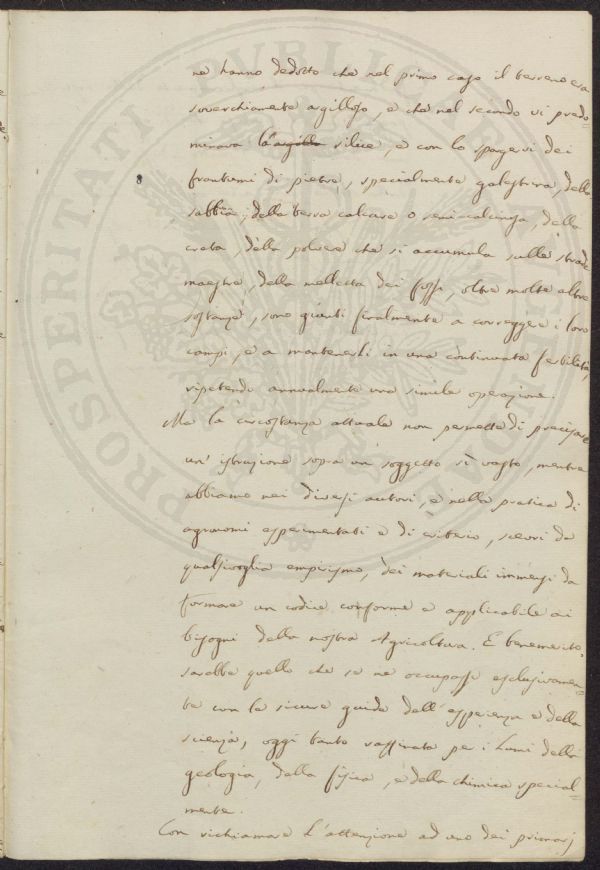 ne hanno dedotto che nel primo caso il terreno era
soverchiamente argilloso, e che nel secondo vi predo=
minava l'argilla silice, e con lo spargervi dei
frantumi di pietre, specialmente galestrina, della
sabbia, della terra calcare o semi-calcarea, della
creta, della polvere che si accumula sulle strade
maestre, della melletta dei fossi, oltre molte altre
sostanze, sono giunti finalmente a correggere i loro
campi, e a mantenerli in una continuata fertilità,
ripetendo annualmente una simile operazione.
Ma la circostanza attuale non permette di precisare
un' istruzione sopra un soggetto sì vasto, mentre
abbiamo nei diversi autori, e nella pratica di
agronomi esperimentati e di criterio, scevri da
qualsivoglia empirismo, dei materiali immensi da
formare un codice conforme e applicabile ai
bisogni della nostra Agricoltura. E benemerito
sarebbe quello che se ne occupasse esclusivamen=
te con le sicure guide dell' esperienza e della
scienza, oggi tanto raffinata per i lumi della
geologia, della fisica, e della chimica special=
mente.
Con richiamare l'attenzione ad uno dei primarj
PROSPERITATI PVBLICAE AVGENDAE